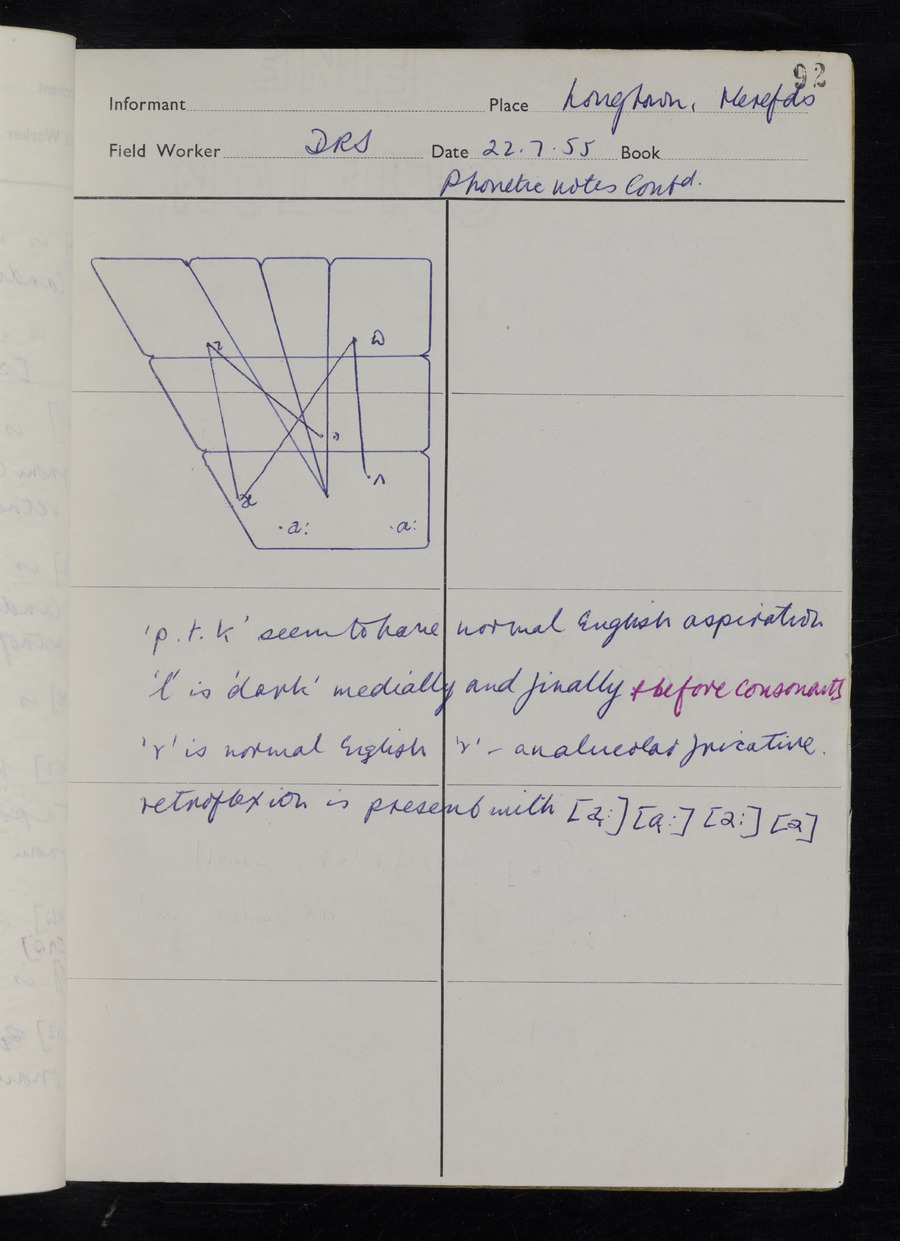 92
Informant Place Longtown, Herefds
Field Worker DRS Date 22.7.55 Book
Phonetic notes Contd.
ɪ ɷ
ə
æ ʌ
a: ɑ:
'p.t.k' seem to have normal English aspiration
'l' is 'dark' medially and finally + before consonants
'r' is normal English 'r' – an alveolar fricative.
retroflexion is present with